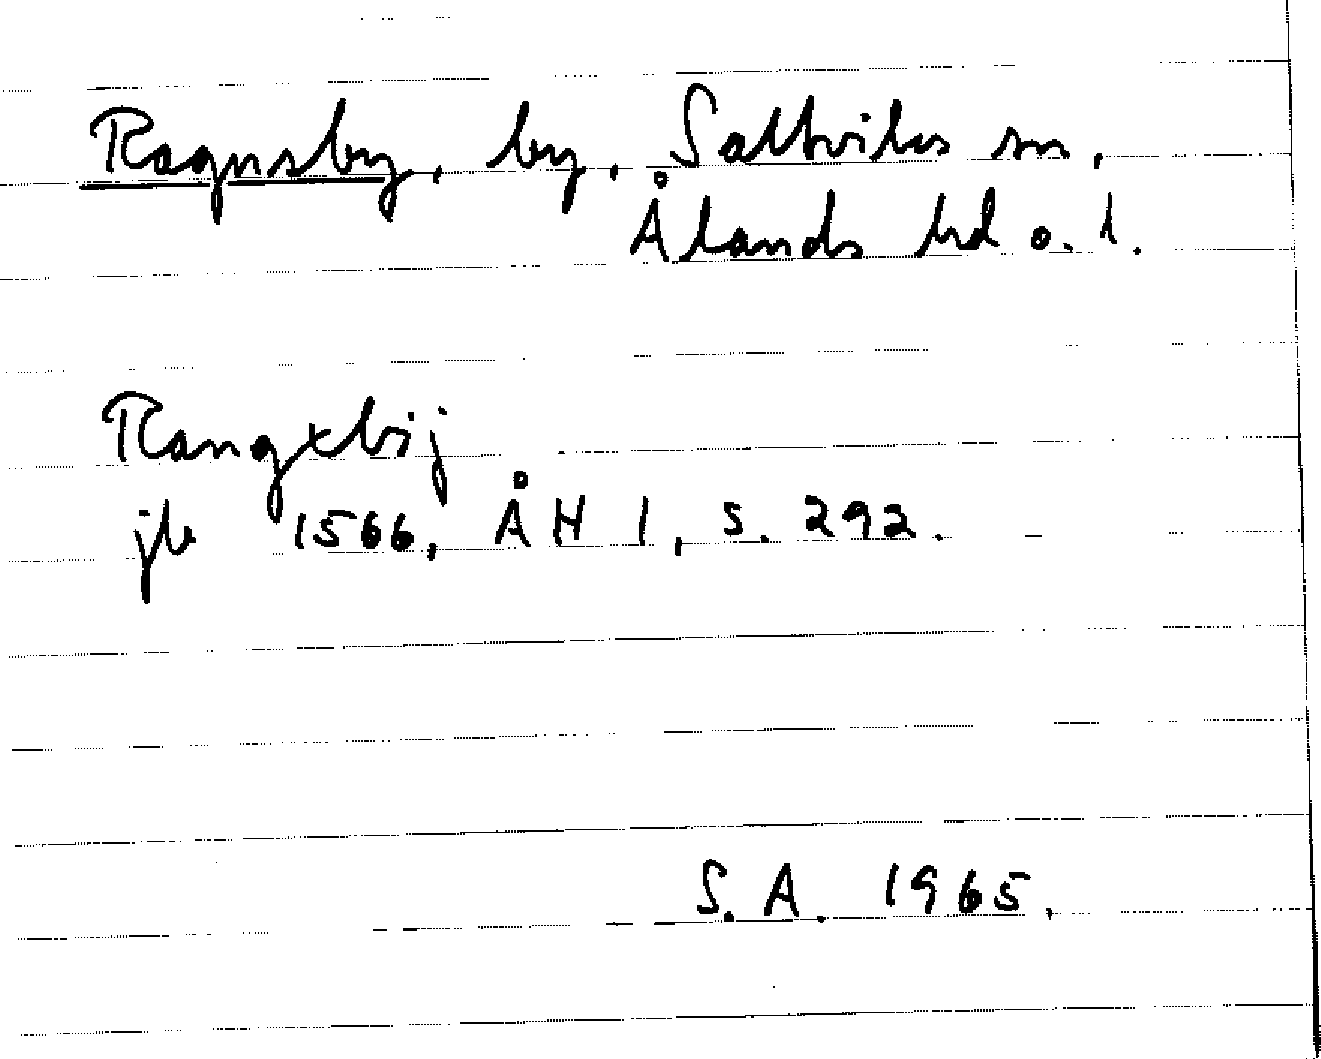 Ragnsby, by, Saltviks sn,
Ålands hd o. l.
Rangxbij
jb 1566, ÅH 1, s. 292.
S.A. 1965.